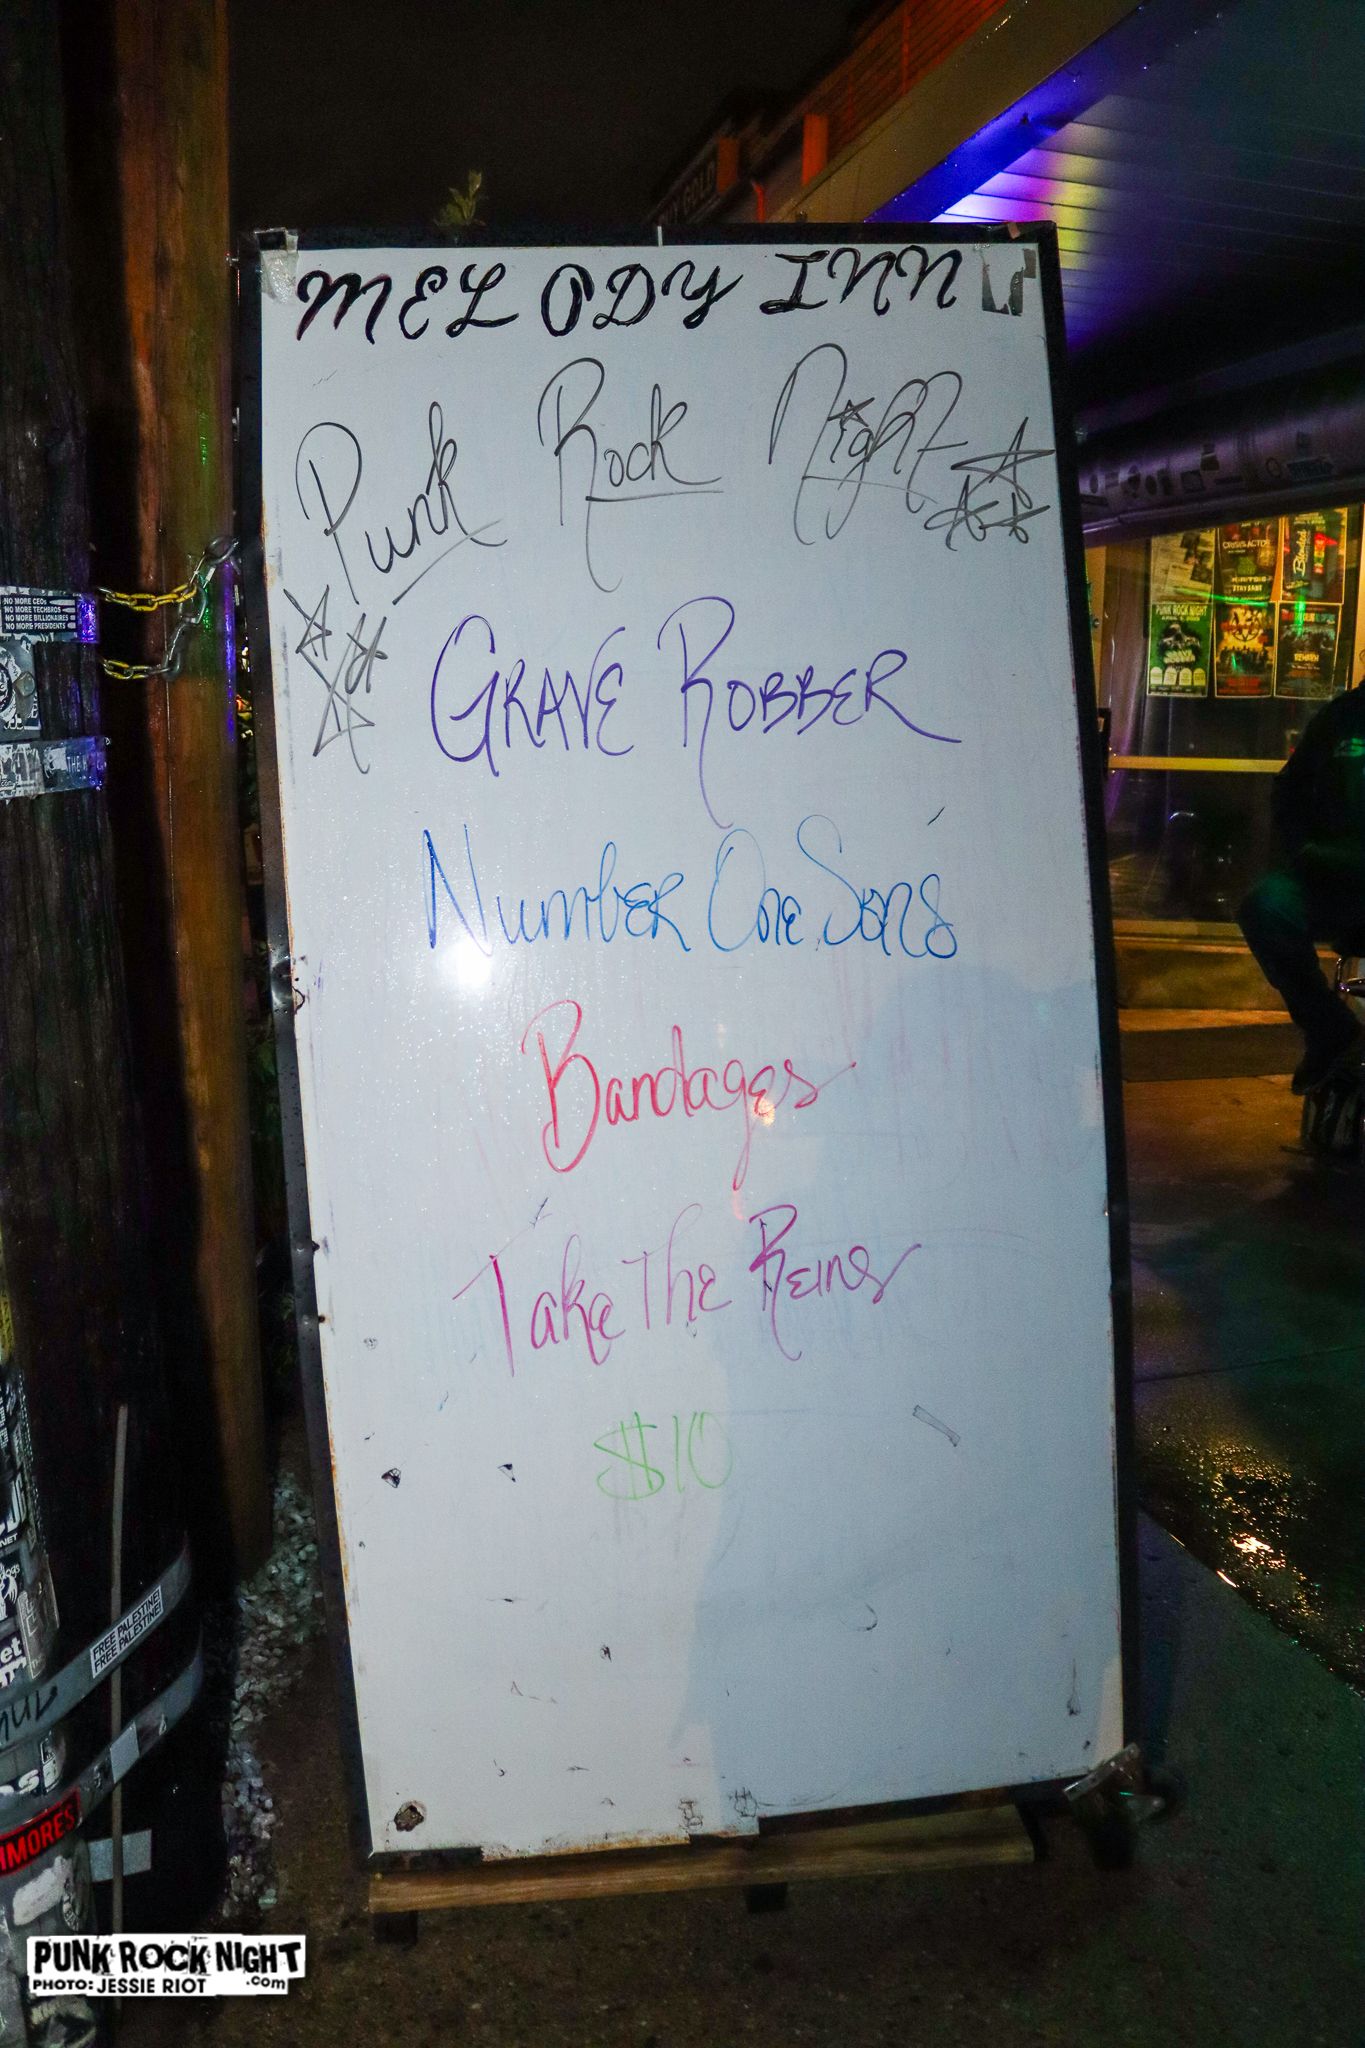 MELODY INN
Punk Rock Night
GRAVE ROBBER
NUMBER One Sons
Bandages
Take The Reins
$10
NO MORE CEOs
NO MORE TECHBROS
NO MORE BILLIONAIRES
NO MORE PRESIDENTS
BUY GOLD
PUNK ROCK NIGHT
FREE PALESTINE!
FREE PALESTINE!
PUNK ROCK NIGHT
.com
PHOTO: JESSIE RIOT